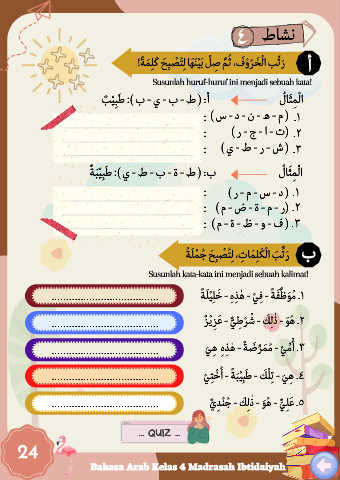 نشاط ٤
أ رَتِّبِ الْحُرُوْفَ، ثُمَّ صِلْ بَيْنَهَا لِتُصْبِحَ كَلِمَةً!
Susunlah huruf-huruf ini menjadi sebuah kata!
الْمِثَالُ أ: (ط - ب - ي - ب): طَبِيْبٌ
١. (م - ه - ن - د - س) :
٢. (ت - ا - ج - ر) :
٣. (ش - ر - ط - ي) :
الْمِثَالُ ب: (ط - ة - ب - ط - ي): طَبِيْبَةٌ
١. (د - س - م - ر) :
٢. (ر - م - ة - ض - م) :
٣. (ف - و - ظ - ة - م) :
ب رَتِّبِ الْكَلِمَاتِ، لِتُصْبِحَ جُمْلَةً
Susunlah kata-kata ini menjadi sebuah kalimat!
١. مُوَظَّفَةٌ - فِيْ - هٰذِهِ - خَلِيْلَةُ
٢. هُوَ - ذٰلِكَ - شُرْطِيٌّ - عَزِيْزٌ
٣. أُمِّيْ - مُمَرِّضَةٌ - هٰذِهِ هِيَ
٤. هِيَ - تِلْكَ - طَبِيْبَةٌ - أُخْتِيْ
٥. عَلِيٌّ - هُوَ - ذٰلِكَ - جُنْدِيٌّ
... QUIZ ...
24
Bahasa Arab Kelas 4 Madrasah Ibtidaiyah